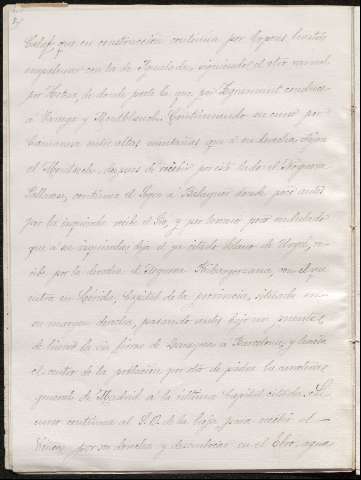 Calaf, que en construcción continúa por Copons, hasta
empalmar con la de Igualada, siguiendo el otro ramal
por Artesa, de donde parte la que por Agramunt conduce
á Tárrega y Montblanch. Continuando su curso por
Camarasa entre altas montañas que á su derecha
el Montsech, despues de recibir por este lado el Noguera
Pallaresa, continúa el Segre á Balaguer donde poco antes
por la izquierda recibe el Sió, y por terreno poco
que á su izquierda deja el ya citado Llano de Urgel, re-
cibe por la derecha el Noguera Ribagorzana, en-
cuentra en Lérida, Capital de la provincia, situada en
su margen derecha, pasando antes bajo un puente
de hierro la via férrea de Zaragoza á Barcelona, y hacia
el centro de la poblacion por otro de piedra la carretera
general de Madrid á la última Capital citada. Su
curso continúa al S.O. de la
por su derecha y desembocar en el Ebro, agua